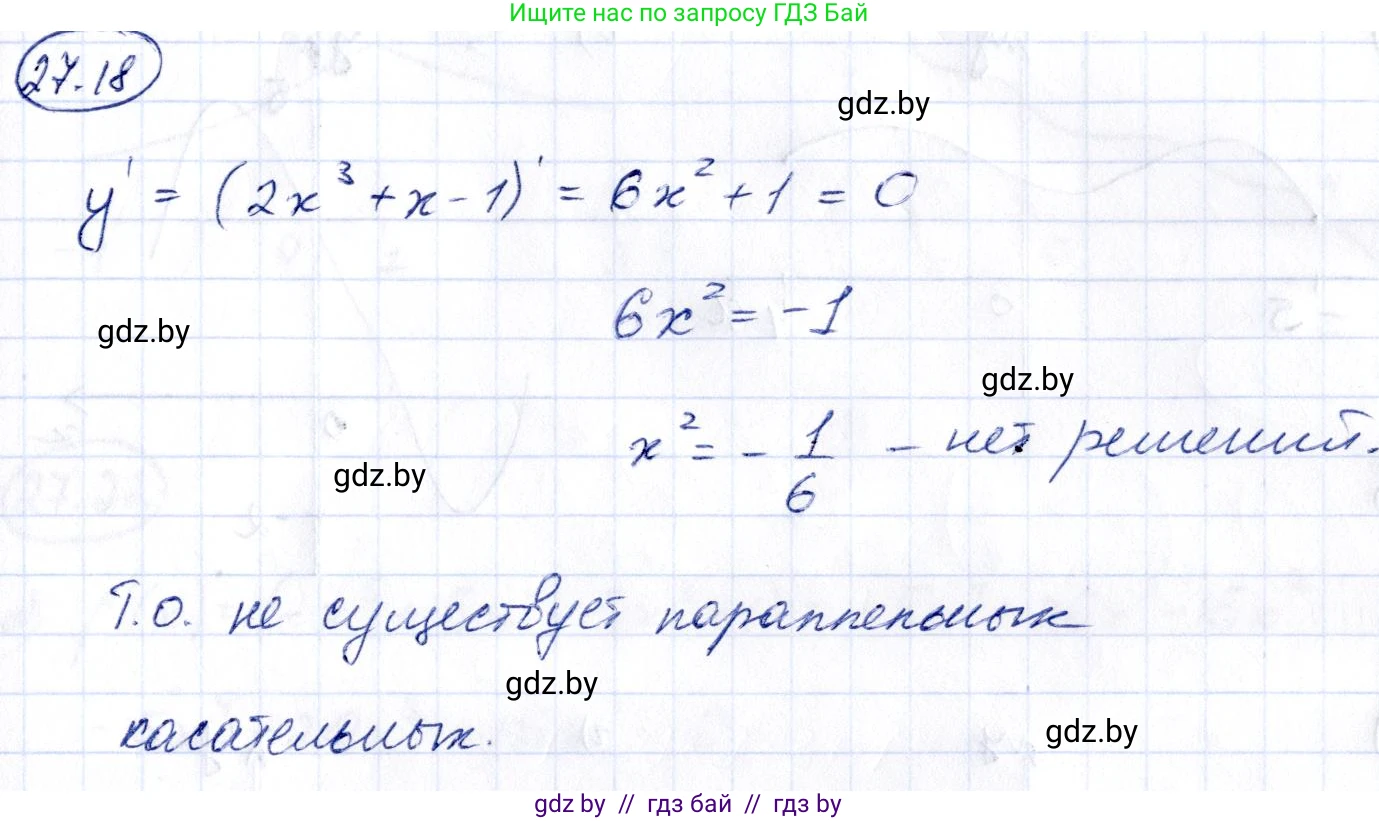 Ищите нас по запросу ГДЗ Бай
27.18
gdz.by
y' = (2x³ + x - 1)' = 6x² + 1 = 0
6x² = -1
gdz.by
gdz.by
x² = - 1/6 - нет решений.
gdz.by
Т.о. не существует параллельных
gdz.by
касательных.
gdz.by
gdz by // гдз бай // гдз by